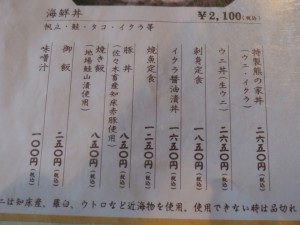 海鮮丼 ￥2,100(税込)
帆立・鮭・タコ・イクラ等
特製熊の家丼 二六五〇円(税込)
(ウニ・イクラ)
ウニ丼(生ウニ) 二六五〇円(税込)
刺身定食 一五〇〇円(税込)
イクラ醤油漬丼 二一〇〇円(税込)
焼魚定食 一二五〇円(税込)
豚丼 八五〇円(税込)
(佐々木畜産知床赤豚使用)
焼き飯 八五〇円(税込)
(地場鮭山漬使用)
御飯 二五〇円(税込)
味噌汁 一〇〇円(税込)
ニは知床産、羅臼、ウトロなど近海物を使用。使用できない時は品切れ